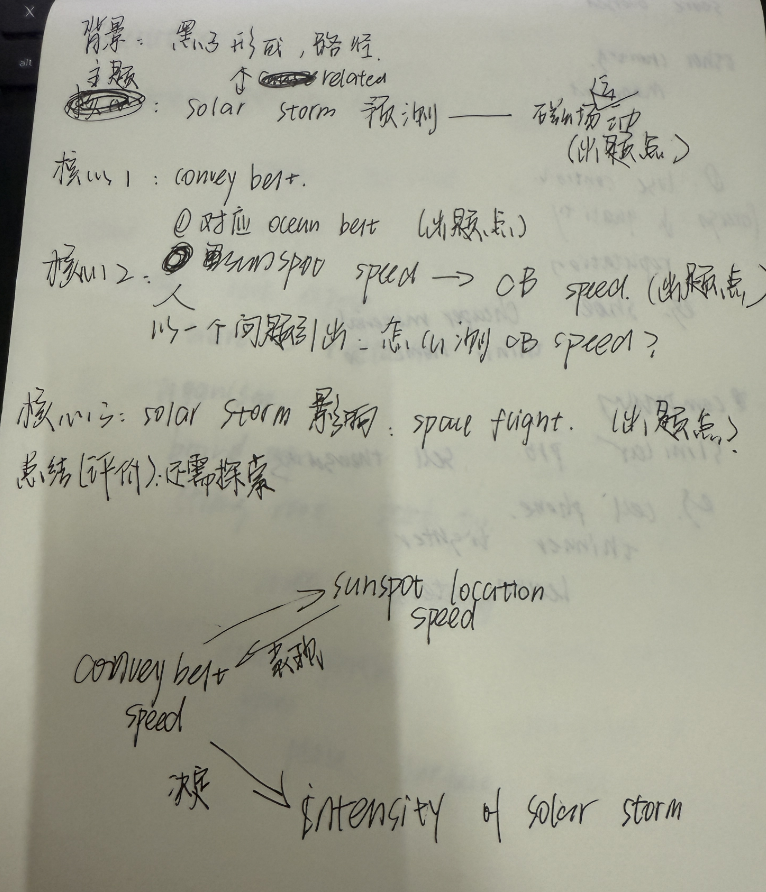 背景：黑子形成，路径.
主题 ↑ related
: solar storm 预测 —— 磁场
(出题点)
核心1：convey belt.
@对应 ocean belt (出题点)
核心2： sunspot speed → OB speed. (出题点)
以一个问题引出：怎么测OB speed?
核心3：solar storm 影响：space flight. (出题点)
总结(评价)：还需探索
sunspot location
speed
表现
convey belt
speed
决定
intensity of solar storm